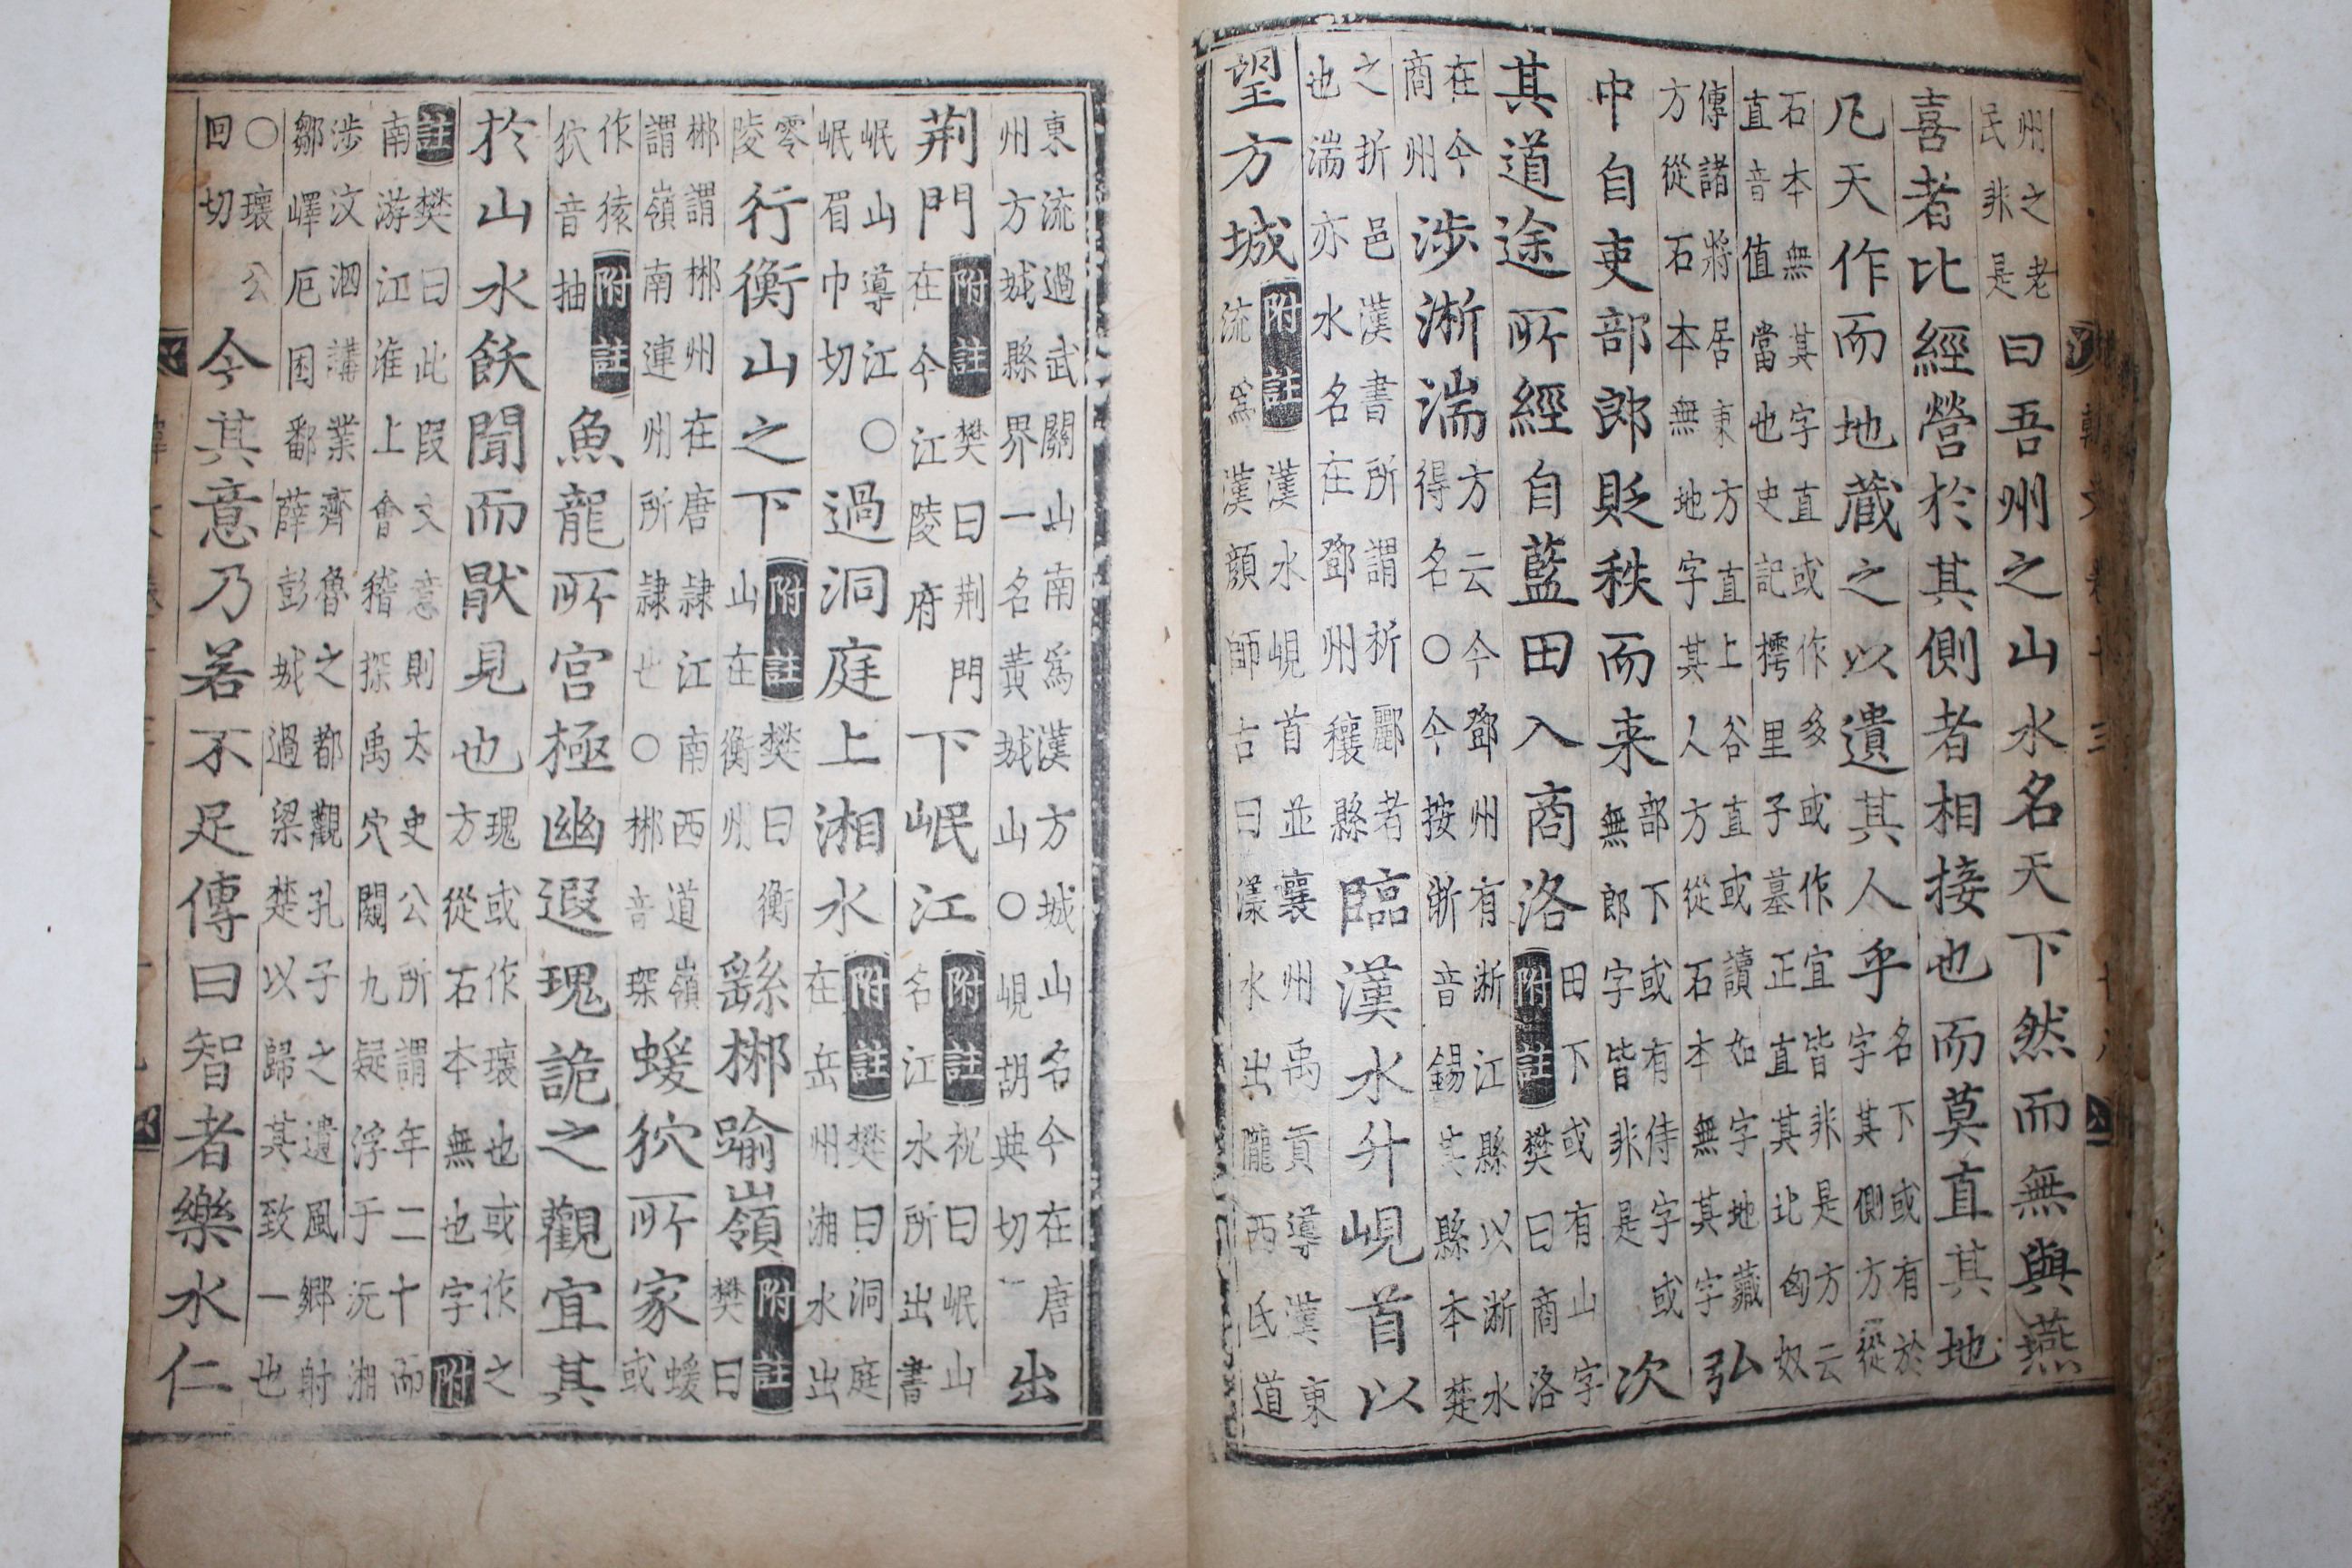 州之老民非是曰吾州之山水名天下然而無與燕
喜者比經營於其側者相接也而莫直其地
凡天作而地蔵之以遺其人乎名下或有於字其側方從
石本無其字直或作多或作宜皆非是方云直音值當也史記樗里子墓正直其北匈奴
傳諸將居東方直上谷直或讀如字地藏方從石本無地字其人方從石本無其字弘
中自吏部郎貶秩而来部下或有侍字或無郎字皆非是次
其道途所經自藍田入商洛田下或有山字附註樊曰商洛
在今商州涉淅湍方云今鄧州有淅江縣以淅水得名○今按淅音錫其縣本楚
之折邑漢書所謂析酈者也湍亦水名在鄧州穰縣臨漢水升峴首以
望方城附註漢水峴首並襄州禹貢導漢東流爲漢顔師古曰漾水出隴西氐道
東流過武關山南爲漢方城山名今在唐州方城縣界一名黃城山○峴胡典切出
荆門附註樊曰荆門在今江陵府下岷江附註祝曰岷山名江水所出書
岷山導江○岷眉巾切過洞庭上湘水附註樊曰洞庭在岳州湘水出
零陵行衡山之下附註樊曰衡山在衡州繇郴踰嶺附註樊曰
郴謂郴州在唐隷江南西道嶺謂嶺南連州所隷也○郴音琛蝯狖所家蝯或
作猿狖音抽附註魚龍所宮極幽遐瑰詭之觀宜其
於山水飫聞而猒見也瑰或作瓌也或作之方從石本無也字附
註樊曰此叚文意則太史公所謂年二十而南游江淮上會稽探禹穴闚九疑浮于沅湘
涉汶泗講業齊魯之都觀孔子之遺風郷射鄒嶧厄困鄱薛彭城過梁楚以歸其致一也
○瓌公回切今其意乃若不足傳曰智者樂水仁